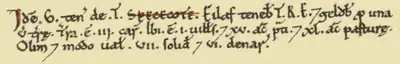 Idē. G. ten' de. r̃. SPECECOTE. Eilaf tenebꞇ̃ T. R. E. 7 geldbꞇ̃ p̱ una
v̓ træ. Tr̃a. ē. III. car̃. Ibi. ē. I. uill's 7 XV. ac̃. p̃ti. 7 XL. ac̃ pasturę.
Olim 7 modo ual'. VII. solid' 7 VI. denar'.